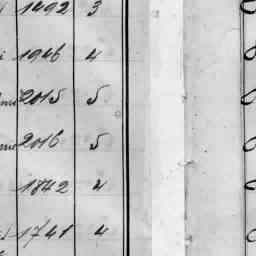 1492 3
1946 4
2015 5
2016 5
1842 4
1741 4